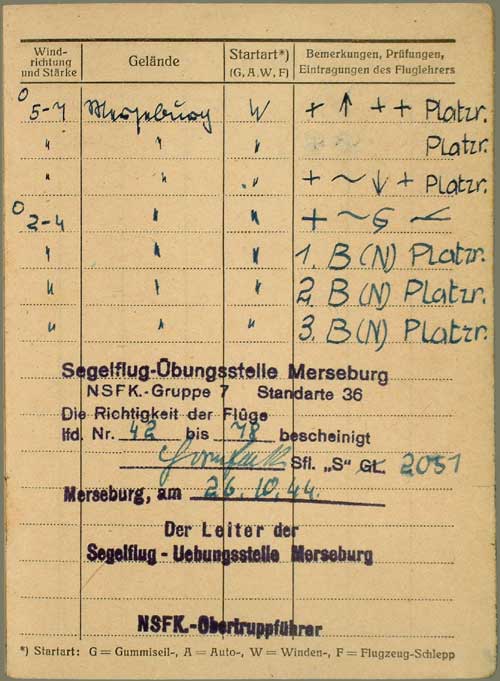 Windrichtung und Stärke Gelände Startart*) (G, A, W, F) Bemerkungen, Prüfungen, Eintragungen des Fluglehrers
O 5-7 Merseburg W + ↑ + + Platzr.
" " " Platzr.
" " " + ~ ↓ + Platzr.
O 2-4 " " + ~
" " " 1. B (N) Platzr.
" " " 2. B (N) Platzr.
" " " 3. B (N) Platzr.
Segelflug-Übungsstelle Merseburg
NSFK.-Gruppe 7 Standarte 36
Die Richtigkeit der Flüge
lfd. Nr. 42 bis 78 bescheinigt
Sfl. „S" GL 2051
Merseburg, am 26.10.44.
Der Leiter der
Segelflug - Uebungsstelle Merseburg
NSFK.-Obertruppführer
*) Startart: G = Gummiseil-, A = Auto-, W = Winden-, F = Flugzeug-Schlepp